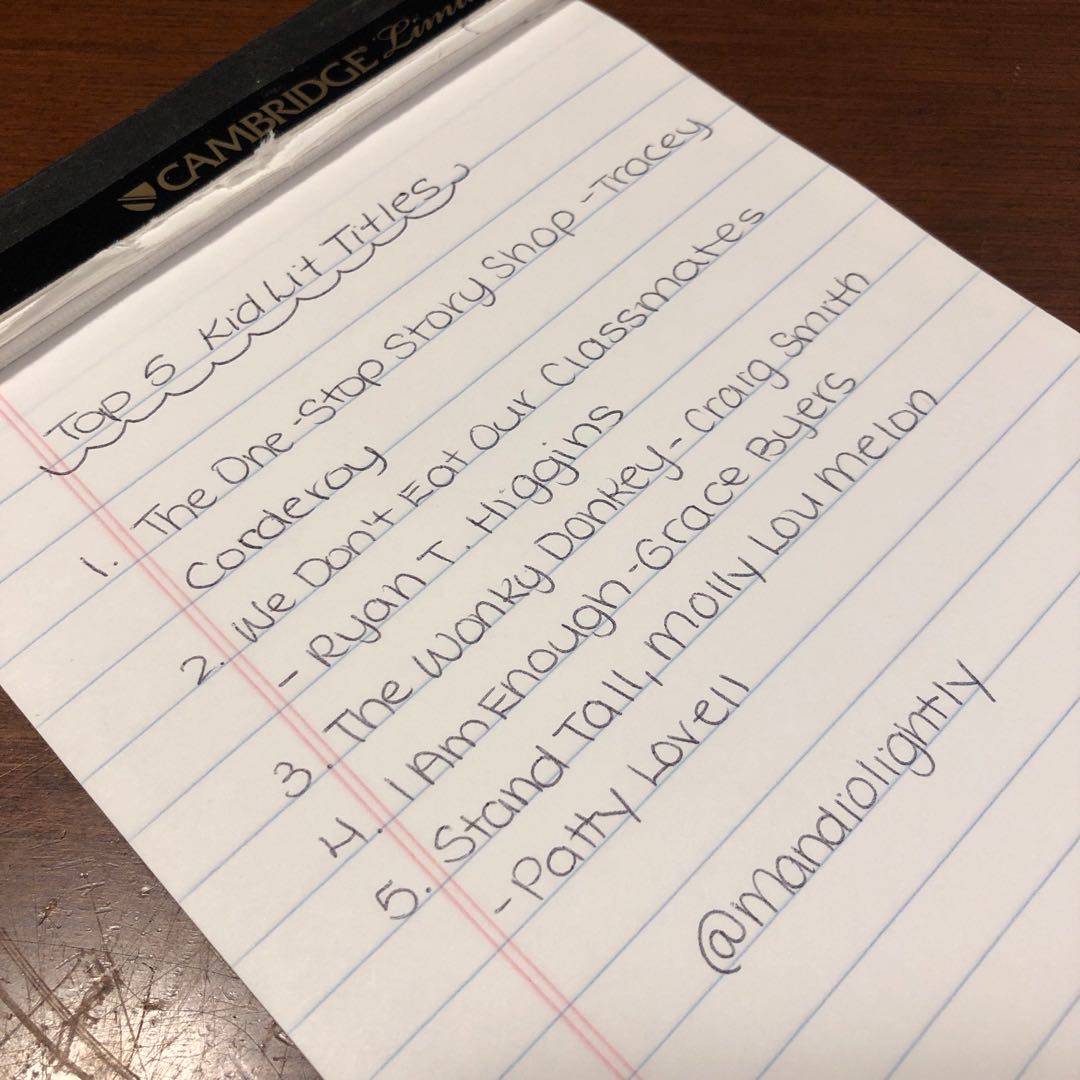 CAMBRIDGE
Top 5 KidLit Titles
1. The One-Stop Story Shop - Tracey
Corderoy
2. We Don't Eat Our Classmates
- Ryan T. Higgins
3. The Wonky Donkey - Craig Smith
4. I Am Enough - Grace Byers
5. Stand Tall, Molly Lou Melon
- Patty Lovell
@mandiolightly